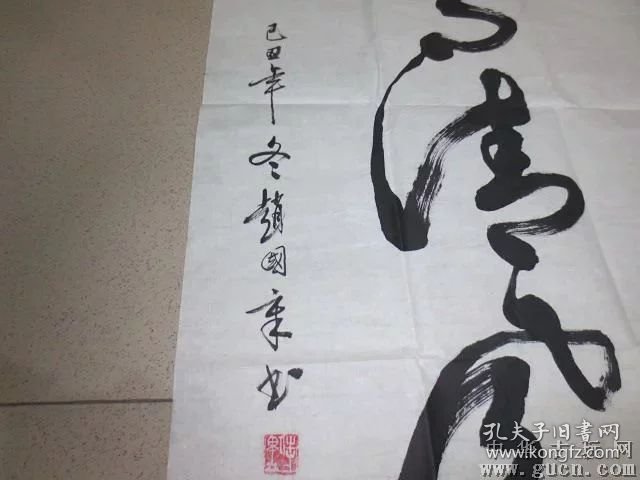 清风
己丑年冬赵國章书
孔夫子旧书网
www.kongfz.com
中华古玩网
www.gucn.com